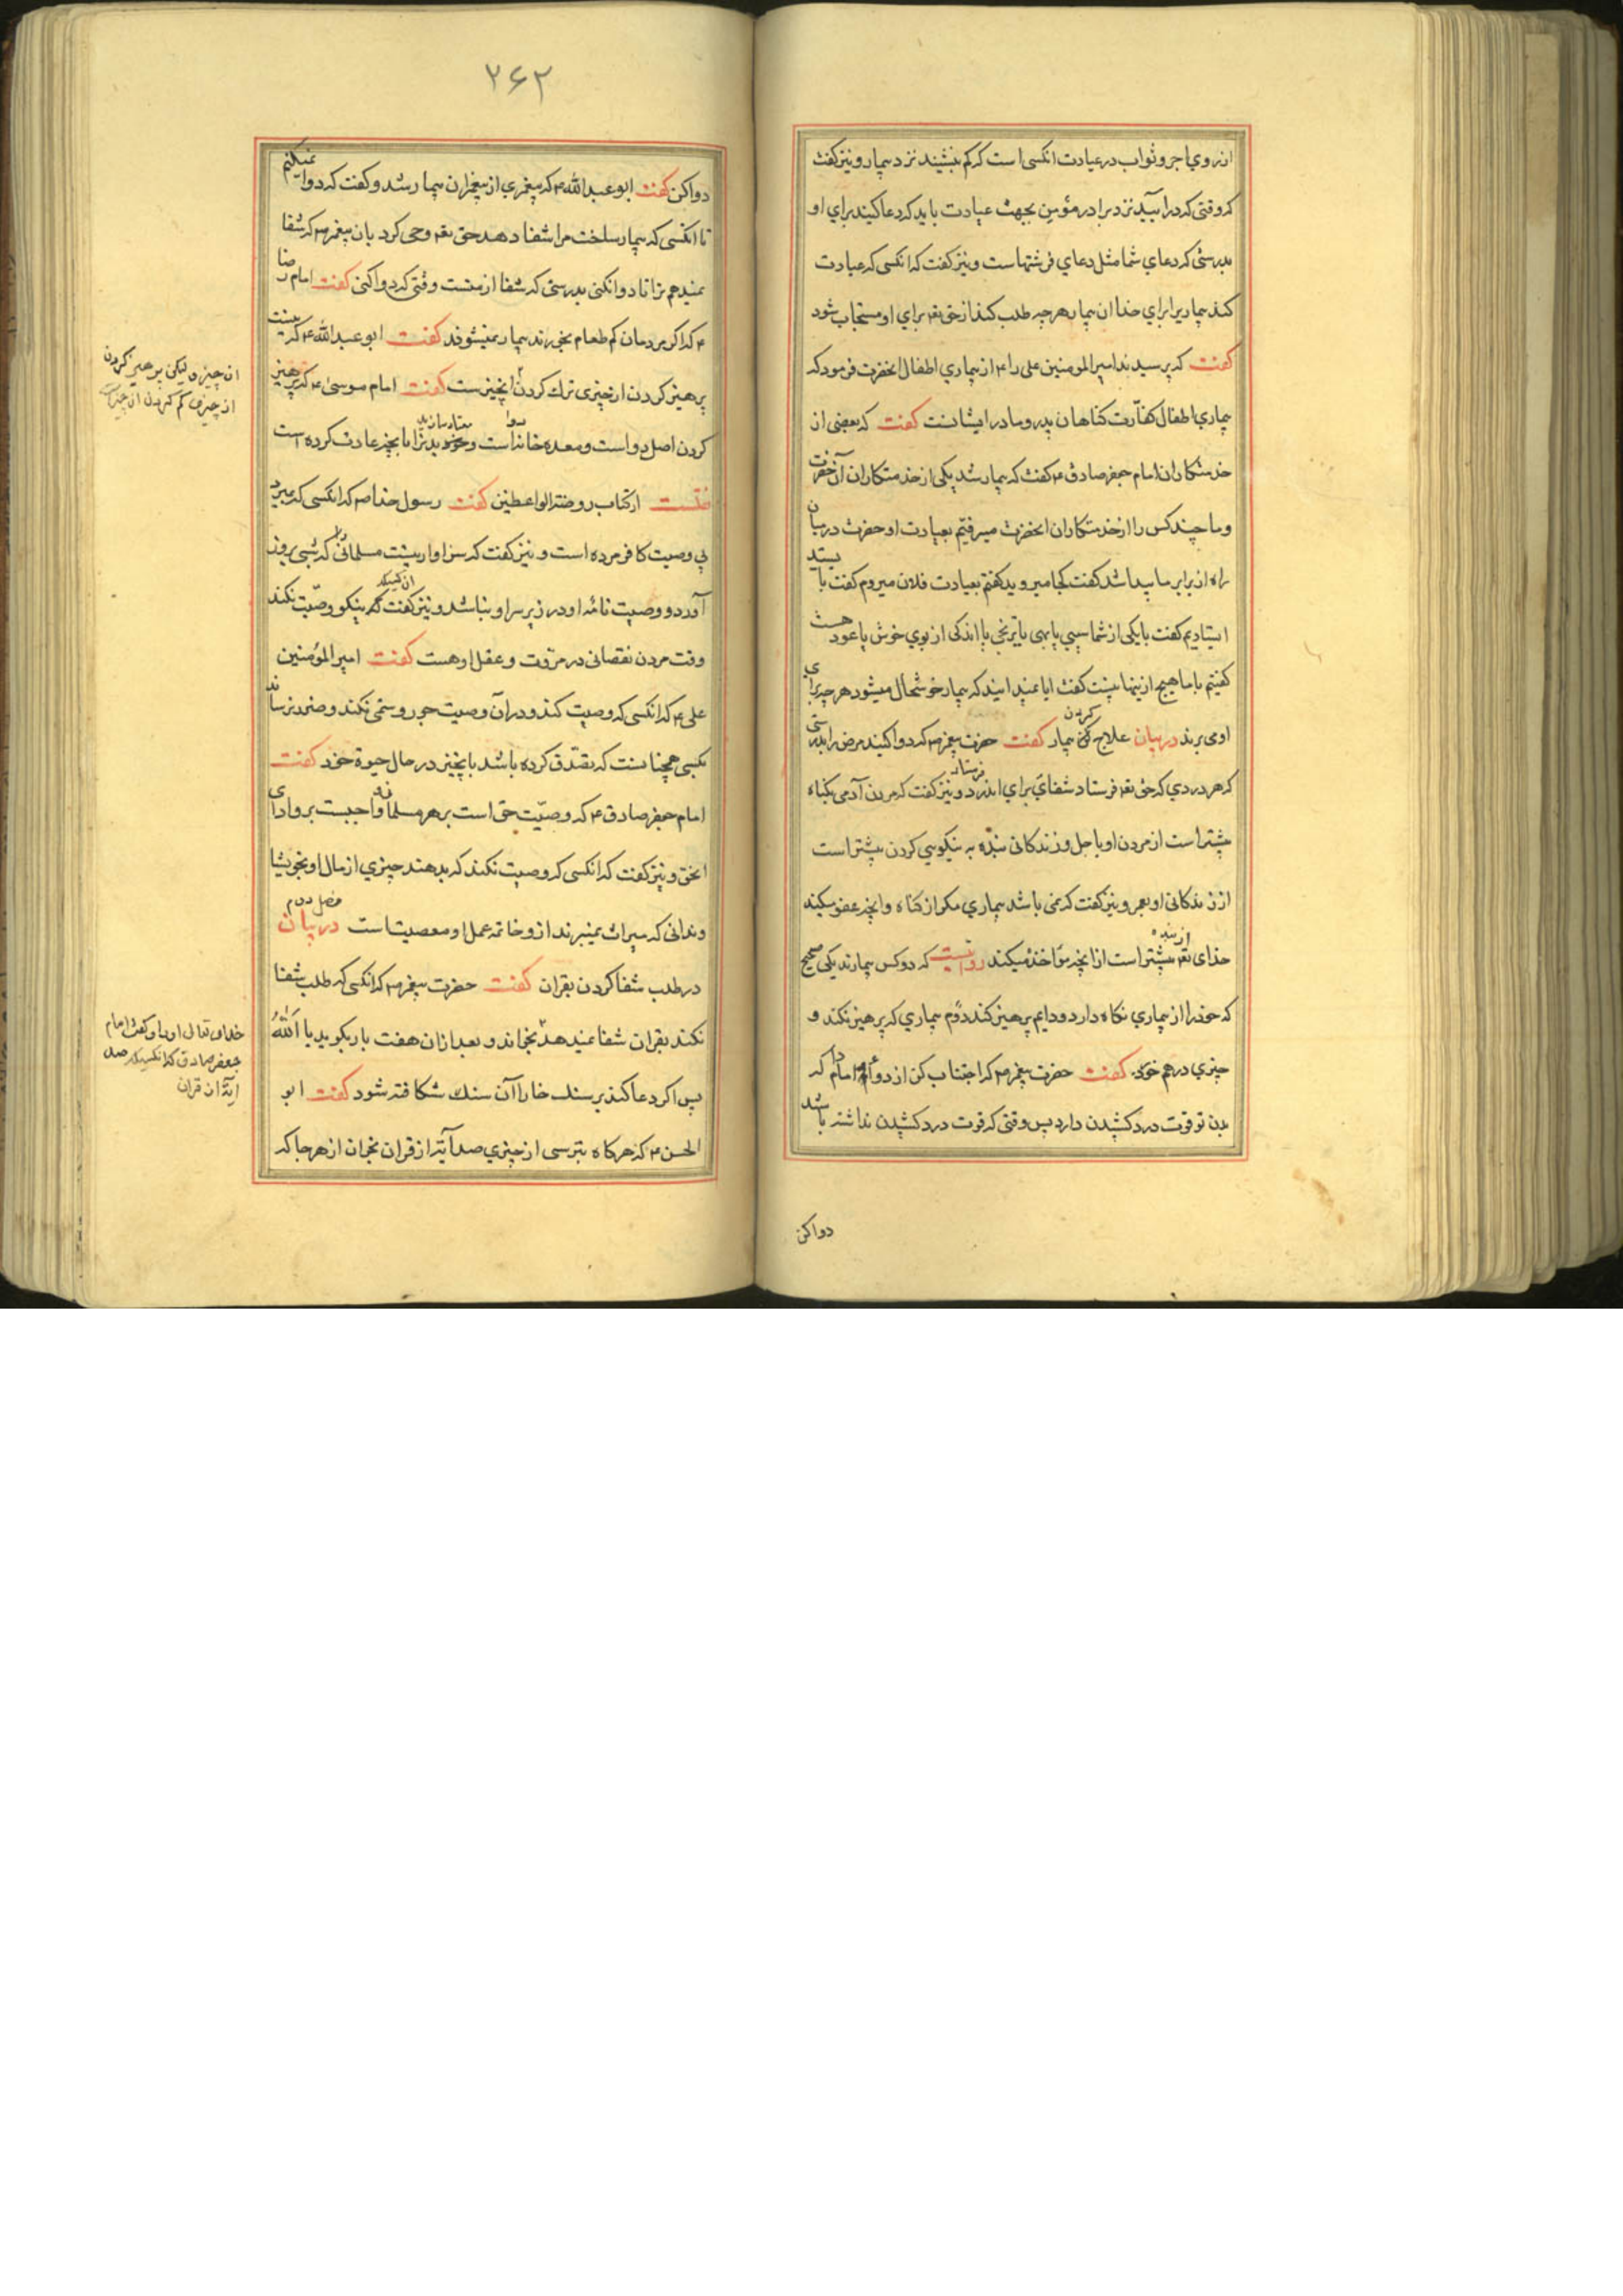 ازروی اجر و ثواب در عیادت انکسی است که کم بنشیند نزد بیمار و نیز کفت
که وقتی که درآیید نزد برادر مؤمن بجهت عیادت باید که دعا کنید برای او
بدرستی که دعای شما مثل دعای فرشتهاست و نیز کفت که انکسی که عیادت
کند بیماریرا برای خدا ان بیمار هرچه طلب کند از حق تعه برای او مستجاب شود
کفت که پرسیدند امیرالمومنین علی را ع از بیماری اطفال انحضرت فرمود که
بیماری اطفال کفّارت کناهان پدر و مادر ایشانست کفت که بعضی از
خدمتکاران امام جعفر صادق ع کفت که بیمار شد یکی از خدمتکاران آن حضرت
و ما چند کس را از خدمتکاران انحضرت میرفتیم بعیادت او حضرت در میان
راه از برابر ما پیدا شد کفت کجا میروید کفتم بعیادت فلان میروم کفت بایستید
ایستادیم کفت با یکی از شما سیبی یا بهی یا ترنجی یا اندکی از بوی خوش یا عود هست
کفتیم با ما هیچ ازینها نیست کفت ایا نمیدانید که بیمار خوشحال میشود هر چیز برای
او می برند در بیان علاج کردن بیمار کفت حضرت پیغمبر ص که دوا کنید مرض را بدرستی
که هر دردی که حق تعه فرستاد شفای برای اندرد فرستاد و نیز کفت که مردن آدمی بکناه
بیشتر است از مردن او باجل و زندکانی بنده به نیکویی کردن بیشتر است
از زندکانی او بعمر و نیز کفت که نمی باشد بیماری مکر از کناه و انچه عفو میکند
خدای تعه از بنده بیشتر است از انچه مؤاخذه میکند روایتست که دو کس بیمارند یکی صحیح
که خود را از بیماری نکاه دارد و دایم پرهیز کند دوّم بیماری که پرهیز نکند و
چیزی درهم خورد کفت حضرت پیغمبر ص که اجتناب کن از دوا مادام که
بدن تو قوت درد کشیدن دارد پس وقتی که قوت درد کشیدن نداشته باشد
دوا کن
۲۶۲
دوا کن کفت ابو عبدالله ع که پیغمبری از پیغمبران بیمار شد و کفت که دوا نمیکنم
تا انکسی که بیمار ساخت مرا شفا دهد حق تعه وحی کرد بان پیغمبر ص که شفا
نمیدهم ترا تا دوا نکنی بدرستی که شفا از منست وقتی که دوا کنی کفت امام رضا
ع که اکر مردمان کم طعام بخورند بیمار نمیشوند کفت ابو عبدالله ع که نیست
پرهیز کردن از چیزی ترک کردن انچیزست کفت امام موسی ع که پرهیز
ان چیز و لیکن پرهیز کردن
از چیزی کم کردن ان چیزست
کردن اصل دواست و معده خانه دواست و معتاد سازید بدن را بانچه عادت کرده است
نقلست از کتاب روضة الواعظین کفت رسول خدا ص که انکسی که بمیرد
بی وصیت کافر مرده است و نیز کفت که سزاوار نیست مسلمانی را که شبی بروز
آورد و وصیت نامۀ او در زیر سر او نباشد و نیز کفت ان کسیکه نیکو وصیّت نکند
وقت مردن نقصانی در مروّت و عقل او هست کفت امیر المؤمنین
علی ع که انکسی که وصیت کند و در آن وصیت جور و ستمی نکند و ضرر نرساند
بکسی همچنانست که تصدّق کرده باشد بانچیز در حال حیوة خود کفت
امام جعفر صادق ع که وصیّت حق است بر هر مسلمان و واجبست برو ادای
انحق و نیز کفت که انکسی که وصیت نکند که بدهند چیزی از مال او بخویشا
وندانی که میراث نمیبرند ازو خاتمه عمل او معصیتست فصل دوم در بیان
در طلب شفا کردن بقران کفت حضرت پیغمبر ص که انکسی که طلب شفا
نکند بقران شفا نمیدهد بخواند و بعد ازان هفت بار بکوید یا اَللّٰهُ
خدای تعالی اورا و کفت امام
جعفر صادق که انکسیکه صد
ایۀ از قران
پس اکر دعا کند بر سنک خارا آن سنک شکافته شود کفت ابو
الحسن ع که هرکاه بترسی از چیزی صد آیة از قران بخوان از هر جا که